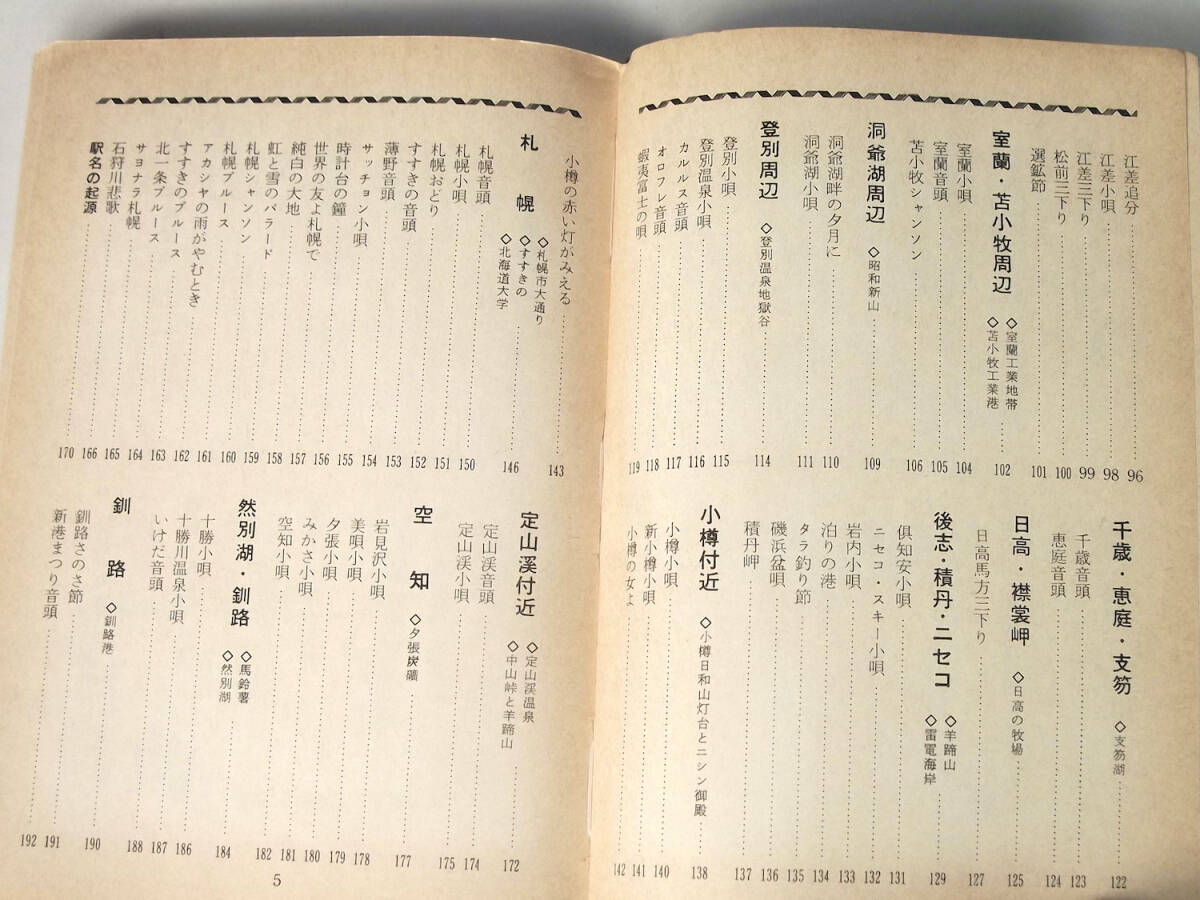 江差追分 96
江差小唄 98
江差三下り 99
松前三下り 100
選鉱節 101
室蘭・苫小牧周辺 ◇室蘭工業地帯 ◇苫小牧工業港 102
室蘭小唄 104
室蘭音頭 105
苫小牧シャンソン 106
洞爺湖周辺 ◇昭和新山 109
洞爺湖畔の夕月に 110
洞爺湖小唄 111
登別周辺 ◇登別温泉地獄谷 114
登別小唄 115
登別温泉小唄 116
カルルス音頭 117
オロフレ音頭 118
蝦夷富士の唄 119
千歳・恵庭・支笏 ◇支笏湖 122
千歳音頭 123
恵庭音頭 124
日高・襟裳岬 ◇日高の牧場 125
日高馬方三下り 127
後志・積丹・ニセコ ◇羊蹄山 ◇雷電海岸 129
倶知安小唄 131
ニセコ・スキー小唄 132
岩内小唄 133
泊りの港 134
タラ釣り節 135
磯浜盆唄 136
積丹岬 137
小樽付近 ◇小樽日和山灯台とニシン御殿 138
小樽小唄 140
新小樽小唄 141
小樽の女よ 142
小樽の赤い灯がみえる 143
札幌 ◇札幌市大通り ◇すすきの ◇北海道大学 146
札幌音頭 150
札幌小唄 151
札幌おどり 152
すすきの音頭 153
薄野音頭 154
サッチョン小唄 155
時計台の鐘 156
世界の友よ札幌で 157
純白の大地 158
虹と雪のバラード 159
札幌シャンソン 160
札幌ブルース 161
アカシヤの雨がやむとき 162
すすきのブルース 163
北一条ブルース 164
サヨナラ札幌 165
石狩川悲歌 166
駅名の起源 170
定山溪付近 ◇定山溪温泉 ◇中山峠と羊蹄山 172
定山溪音頭 174
定山溪小唄 175
空知 ◇夕張炭礦 177
岩見沢小唄 178
美唄小唄 179
夕張小唄 180
みかさ小唄 181
空知小唄 182
然別湖・釧路 ◇馬鈴薯 ◇然別湖 184
十勝小唄 186
十勝川温泉小唄 187
いけだ音頭 188
釧路 ◇釧路港 190
釧路さのさ節 191
新港まつり音頭 192
5